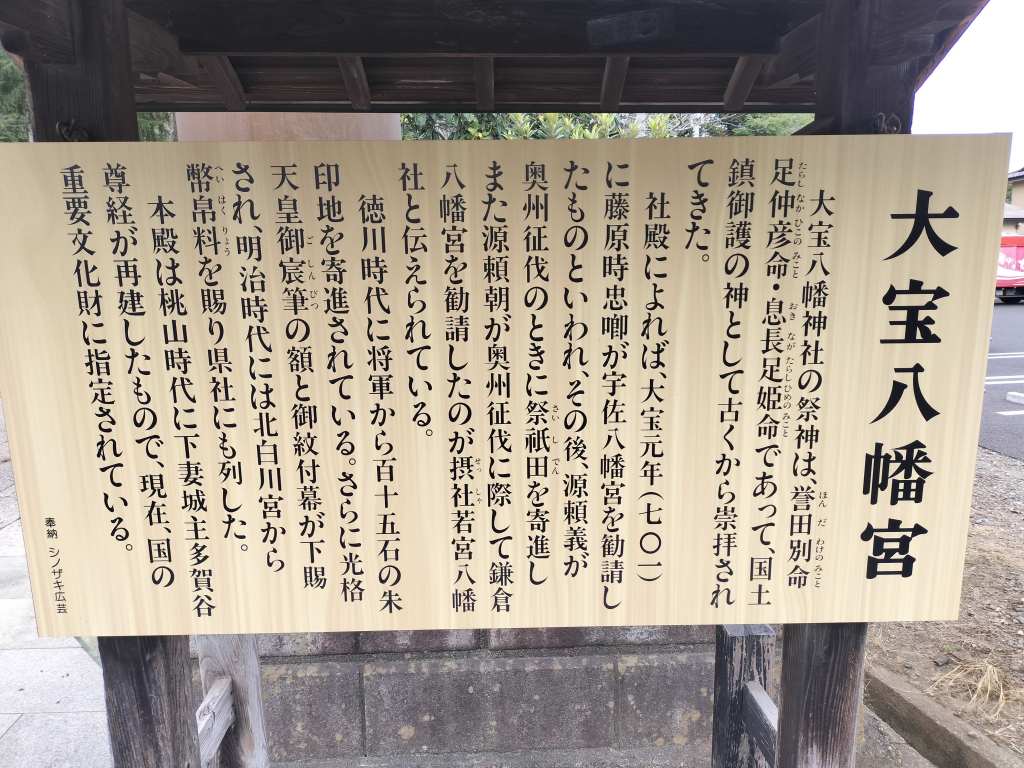 大宝八幡宮
大宝八幡神社の祭神は、誉田別命
足仲彦命・息長足姫命であって、国土
鎮御護の神として古くから崇拝され
てきた。
社殿によれば、大宝元年(七〇一)
に藤原時忠唧が宇佐八幡宮を勧請し
たものといわれ、その後、源頼義が
奥州征伐のときに祭祇田を寄進し
また源頼朝が奥州征伐に際して鎌倉
八幡宮を勧請したのが摂社若宮八幡
社と伝えられている。
徳川時代に将軍から百十五石の朱
印地を寄進されている。さらに光格
天皇御宸筆の額と御紋付幕が下賜
され、明治時代には北白川宮から
幣帛料を賜り県社にも列した。
本殿は桃山時代に下妻城主多賀谷
尊経が再建したもので、現在、国の
重要文化財に指定されている。
奉納 シノザキ広芸